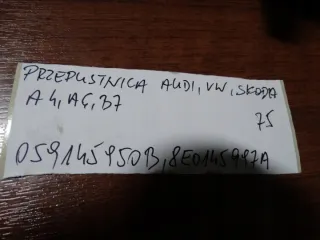 PRZEPUSTNICA AUDI, VW, SKODA
A4, A6, B7
75
059145950B, 8E0145997A